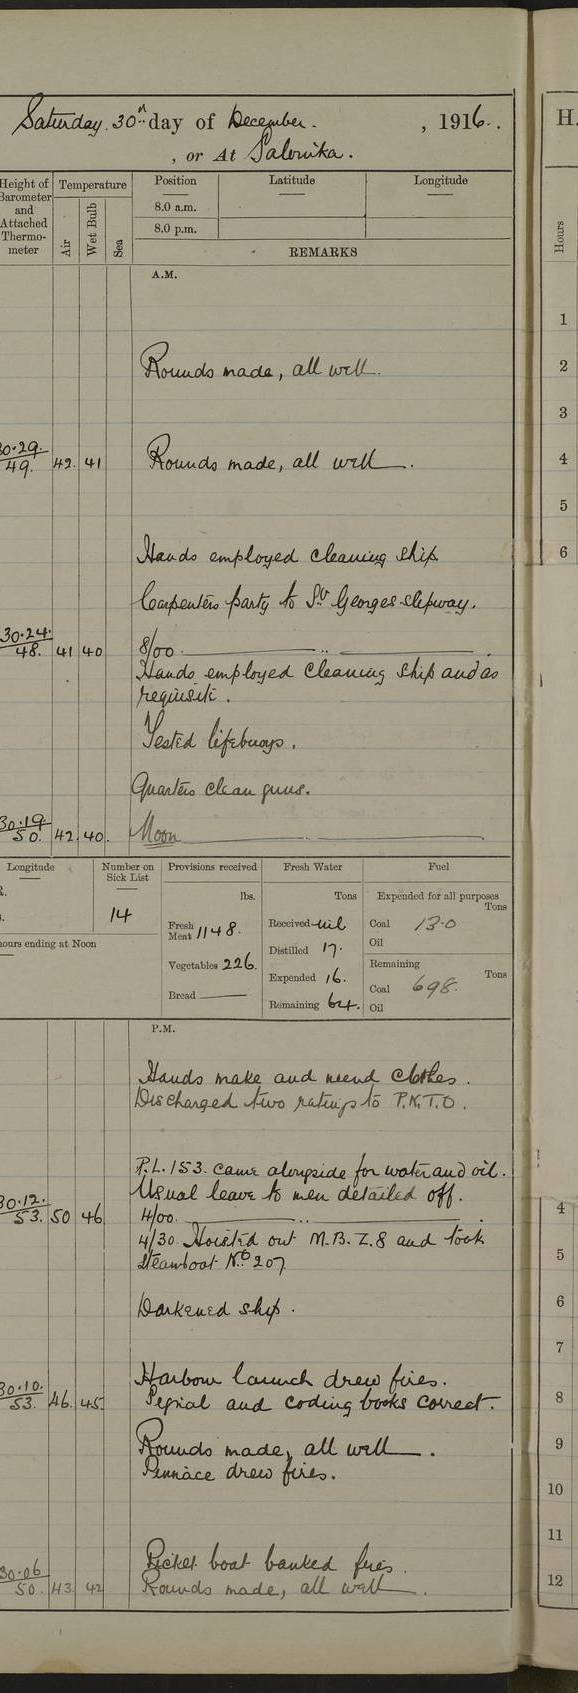 Saturday. 30th day of December. , 1916.
, or At Salonika.
Height of Barometer and Attached Thermo- meter
Temperature
Air
Wet Bulb
Sea
Position
Latitude
Longitude
8.0 a.m.
8.0 p.m.
REMARKS
A.M.
Rounds made, all well.
30.29. 49. 42. 41 Rounds made, all well.
Hands employed cleaning ship.
Carpenters party to St Georges slipway.
30.24. 48. 41 40 8/00.
Hands employed cleaning ship and as
requisite.
Tested lifebuoys.
Quarters clean guns.
30.19 50. 42. 40. Noon
Longitude
Number on Sick List
14
hours ending at Noon
Provisions received
lbs.
Fresh Meat 1148.
Vegetables 226.
Bread
Fresh Water
Tons
Received nil
Distilled 17.
Expended 16.
Remaining 64.
Fuel
Expended for all purposes
Tons
Coal 13.0
Oil
Remaining
Tons
Coal 698.
Oil
P.M.
Hands make and mend clothes.
Discharged two ratings to P.K.T.O.
P.L. 153. came alongside for water and oil.
Usual leave to men detailed off.
30.12. 53. 50 46 4/00.
4/30 Hoisted out M.B. Z.8 and took
steamboat No 207
Darkened ship.
Harbour launch drew fires.
30.10. 53. 46. 45. Signal and coding books correct.
Rounds made, all well.
Pinnace drew fires.
Picket boat banked fires.
30.06 50. 43. 42 Rounds made, all well.
H.
Hours
1
2
3
4
5
6
4
5
6
7
8
9
10
11
12